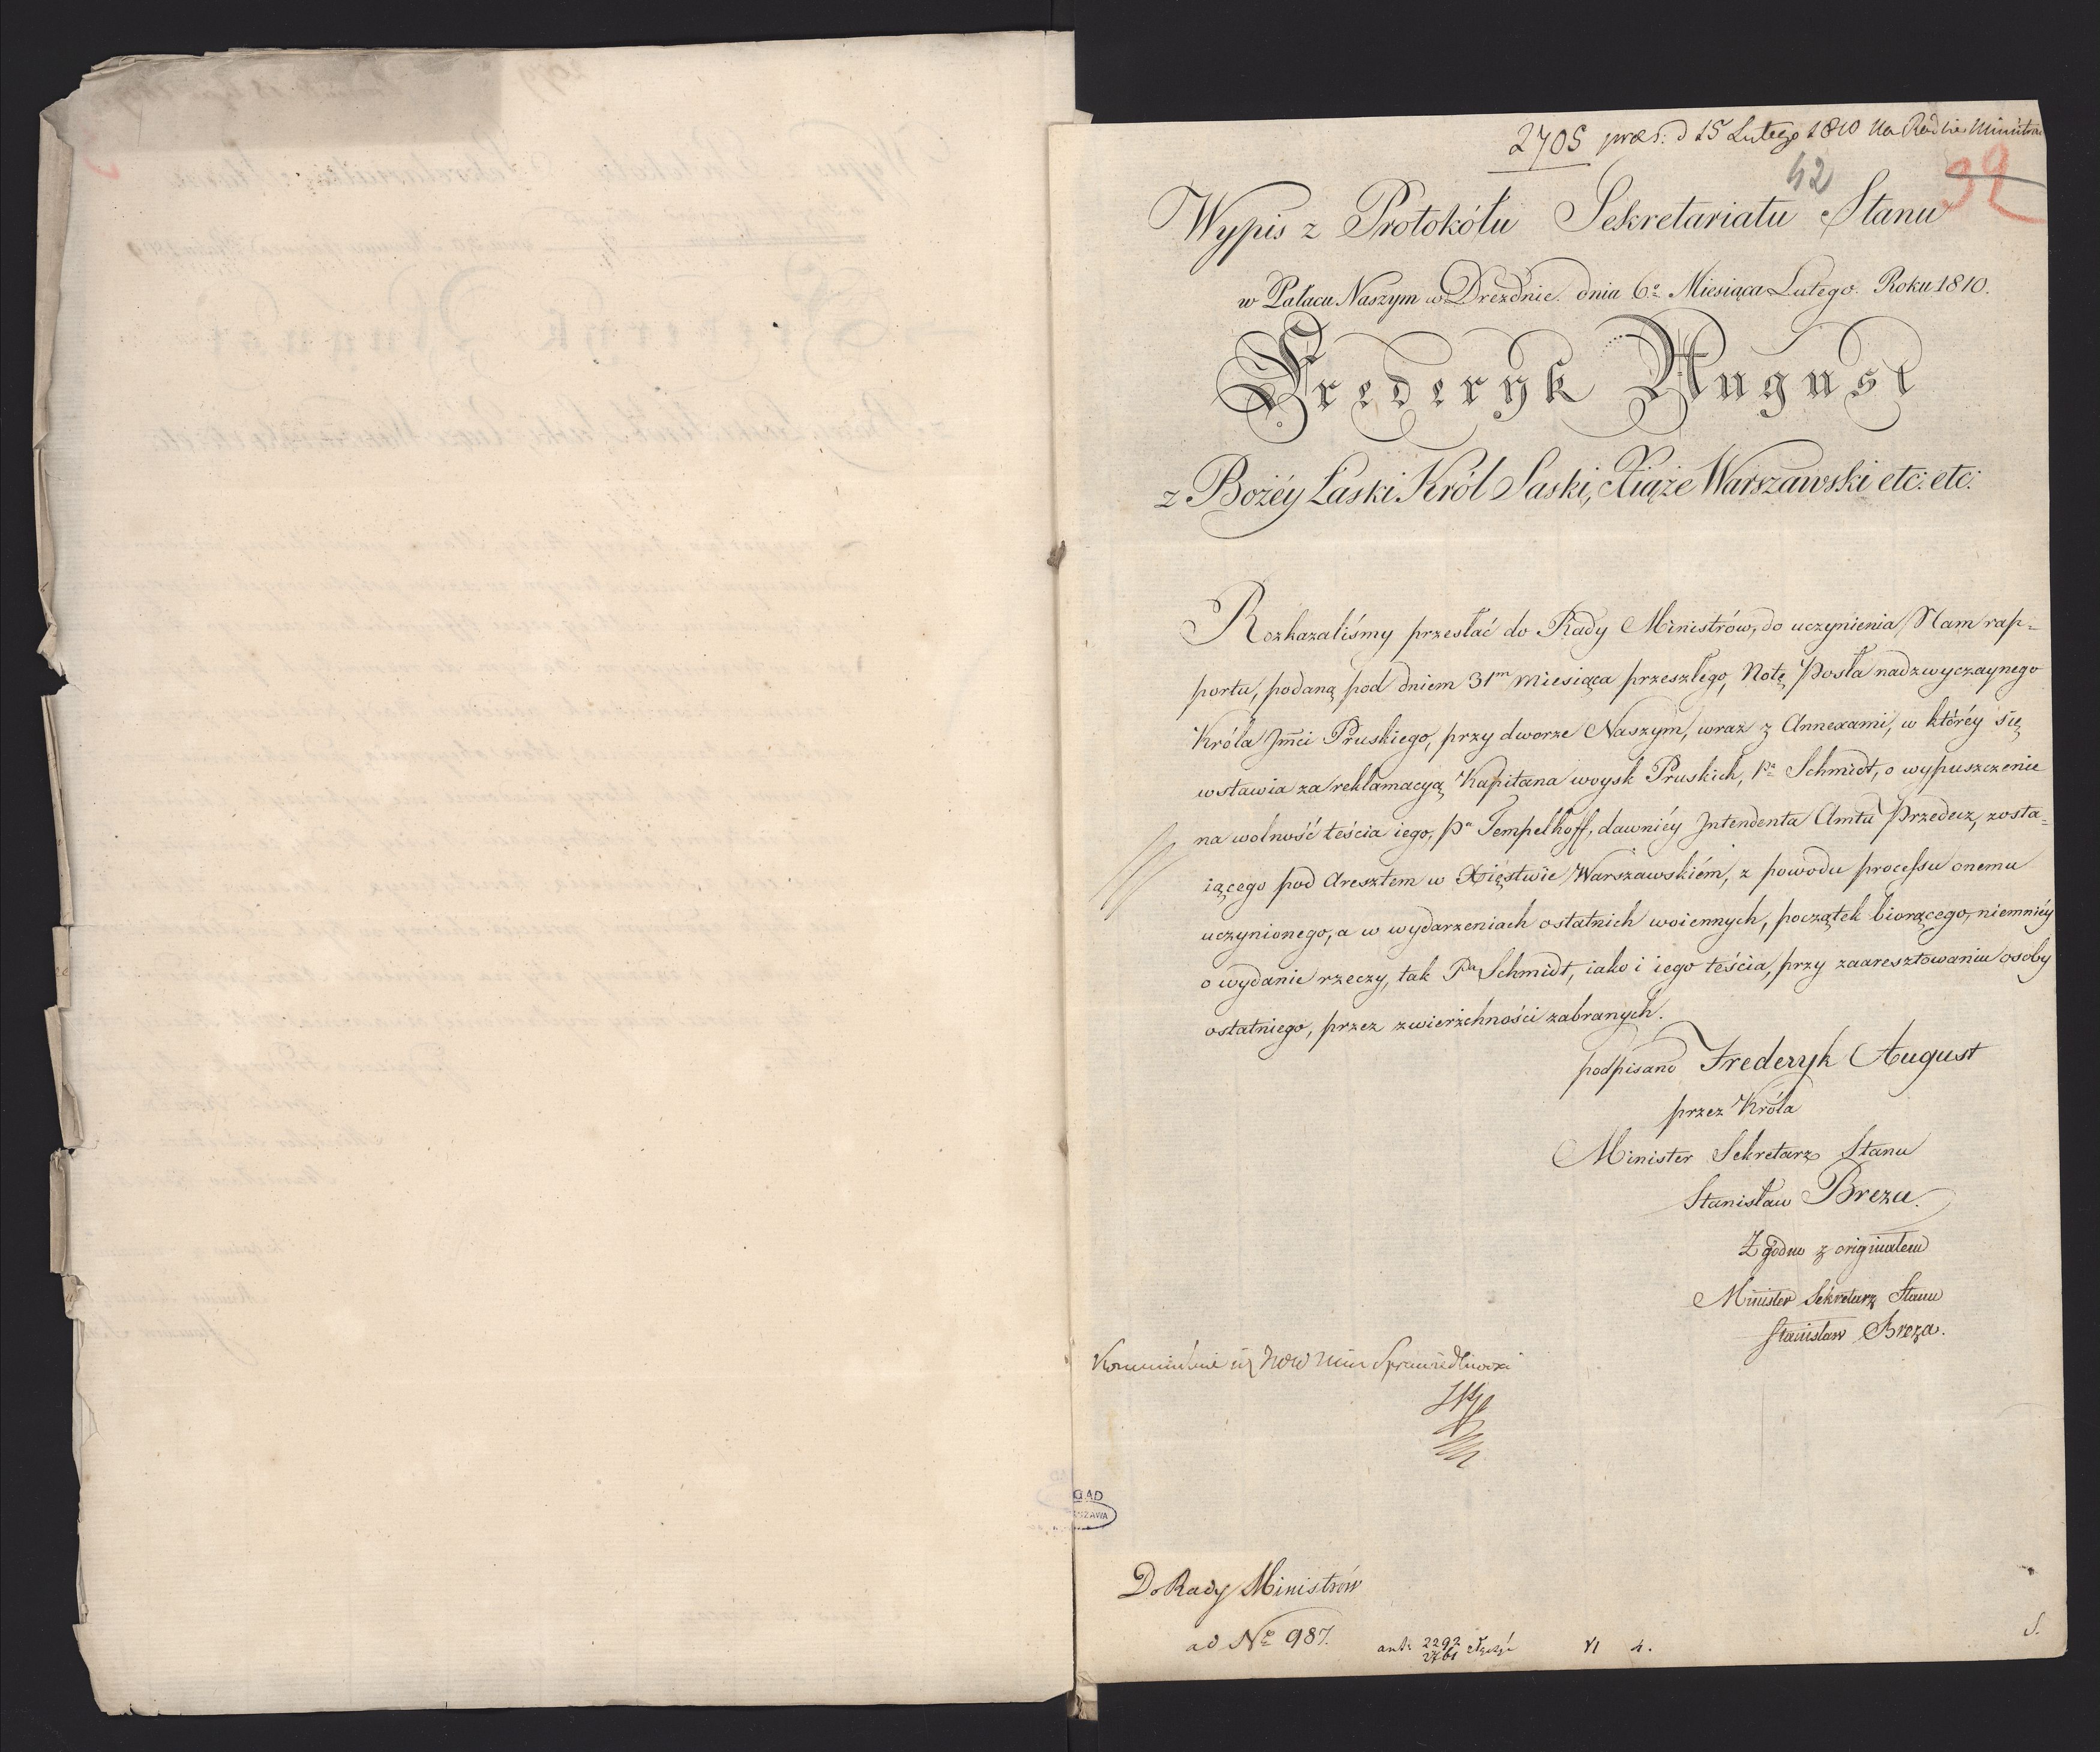 2705 præs: d 15 Lutego 1810 Na Radzie Ministrów
42
39
Wypis z Protokółu Sekretariatu Stanu
w Pałacu Naszym w Dreźdnie. dnia 6º Miesiąca Lutego. Roku 1810.
Frederyk August
z Bożéy Łaski Król Saski, Xiąże Warszawski etc: etc:
Rozkazaliśmy przesłać do Rady Ministrów, do uczynienia Nam rap=
portu, podaną pod dniem 31m miesiąca przeszłego, Notę Posła nadzwyczaynego
Króla Jmci Pruskiego, przy dworze Naszym, wraz z Annexami, w któréy się
wstawia za reklamacyą Kapitana woysk Pruskich, Pa Schmidt, o wypuszczenie
na wolność teścia iego, Pa Tempelhoff, dawniéy Intendenta Amtu Przedecz, zosta=
iącego pod Aresztem w Xięstwie Warszawskiém, z powodu processu onemu
uczynionego, a w wydarzeniach ostatnich woiennych, początek biorącego, niemniéy
o wydanie rzeczy, tak Pa Schmidt, iako i iego teścia, przy zaaresztowaniu osoby
ostatniego, przez zwierzchności zabranych.
podpisano Frederyk August
przez Króla
Minister Sekretarz Stanu
Stanisław Breza.
Zgodno z originałem
Minister Sekretarz Stanu
Stanisław Breza.
Sprawiedliwości
GAD
SZAWA
Do Rady Ministrów
ad Nº 987.
ant: 2292
2761
VI 4.
S.